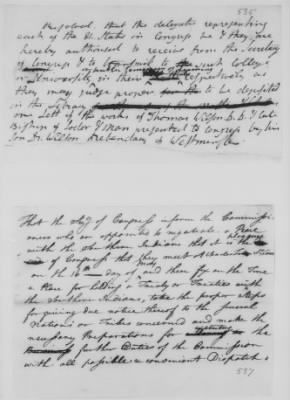 535
Resolved, that the delegates representing
each of the U. States in Congress be & they are
hereby authorised to receive from the Secretary
of Congress & to transmit to such College
or University in their respectively as
they may judge proper to be deposited
in the Library
one Sett of the works of Thomas Wilson D. D. late
Bishop of Sodor & Man presented to Congress by his
Son Dr. Wilson Prebendary of Westminster
That the Secy of Congress inform the Commissi-
oners who are appointed to negociate a Peace
with the Southern Indians that it is the pleasure
of Congress that they meet at
on the 16 day of and there fix on the Time
& Place for holding a Treaty or Treaties with
the Southern Indians, take the proper steps
for giving due notice thereof to the several
Nations or Tribes concerned and make the
necessary Preparations for the
further Duties of the Commission
with all possible & convenient Dispatch
537